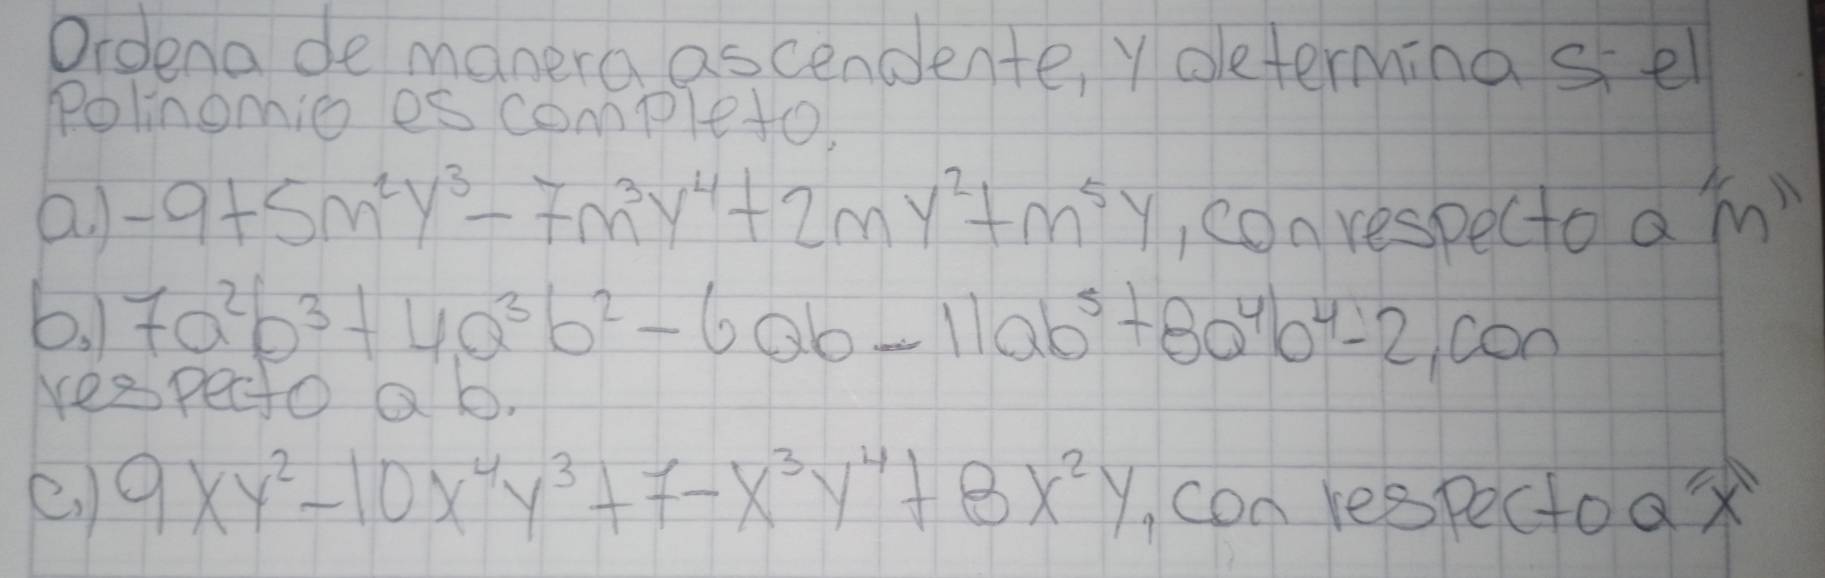 Ordena de manera ascendente, y determina si el
Polinomio es completo.
a.) -9+5m²y³-7m³y⁴+2my²+m⁵y, con respecto a "m"
b.) 7a²b³+4a³b²-6ab-11ab⁵+8a⁴b⁴-2, con
respecto a b.
c.) 9xy²-10x⁴y³+7-x³y⁴+8x²y, con respecto a "x"